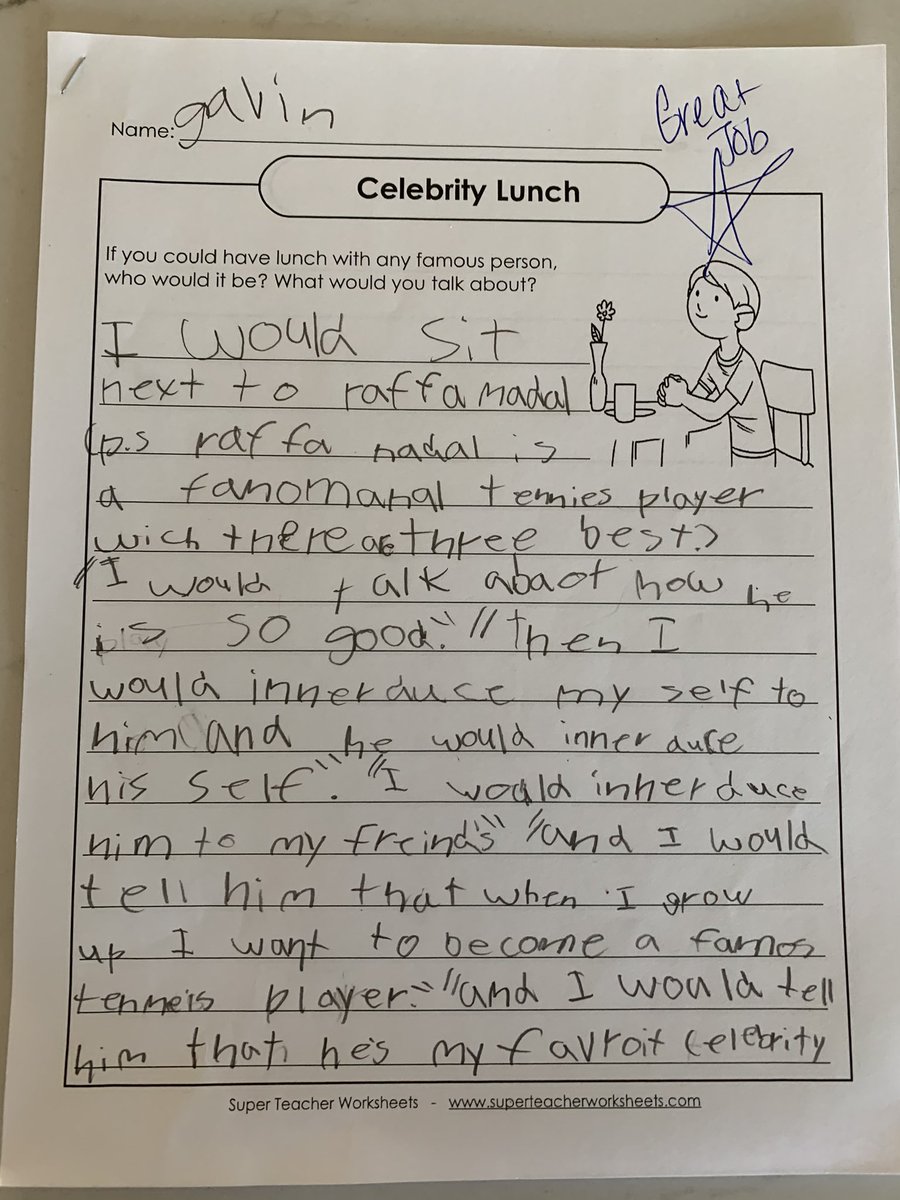 Great
Job
Name: gavin
Celebrity Lunch
If you could have lunch with any famous person,
who would it be? What would you talk about?
I would sit
next to raffa nadal
(p.s raffa nadal is
a fanomanal tennies player
wich there are three best.)
"I would talk abaot how he
is so good." "then I
would innerduce my self to
him and he would innerduce
his self". "I would innerduce
him to my freinds" "and I would
tell him that when I grow
up I want to become a famos
tenneis player." "and I would tell
him that he's my favroit celebrity
Super Teacher Worksheets - www.superteacherworksheets.com